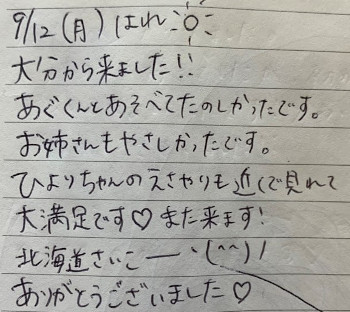 9/12(月)はれ☼
大分から来ました!!
あぐくんとあそべてたのしかったです。
お姉さんもやさしかったです。
ひよりちゃんのえさやりも近くで見れて
大満足です♡また来ます!
北海道さいこーヽ(^^)ノ
ありがとうございました♡